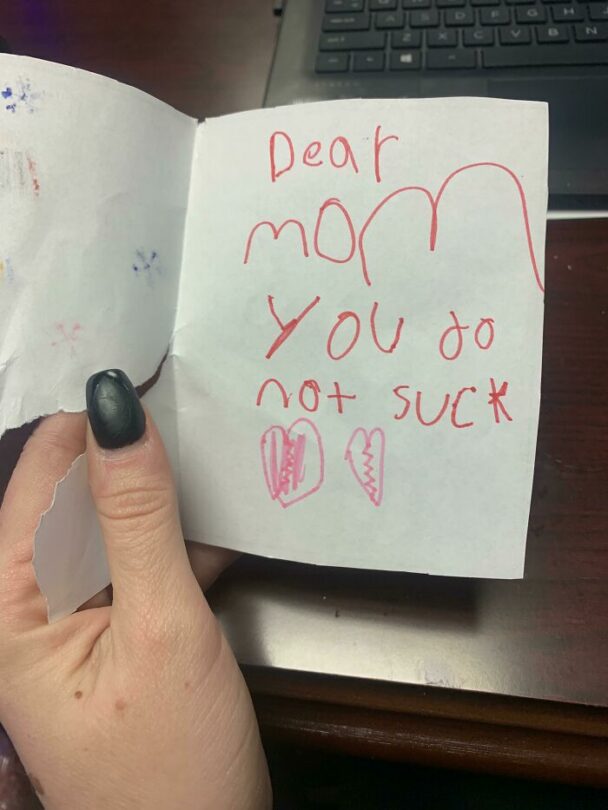 Dear
mom
YOU do
not suck